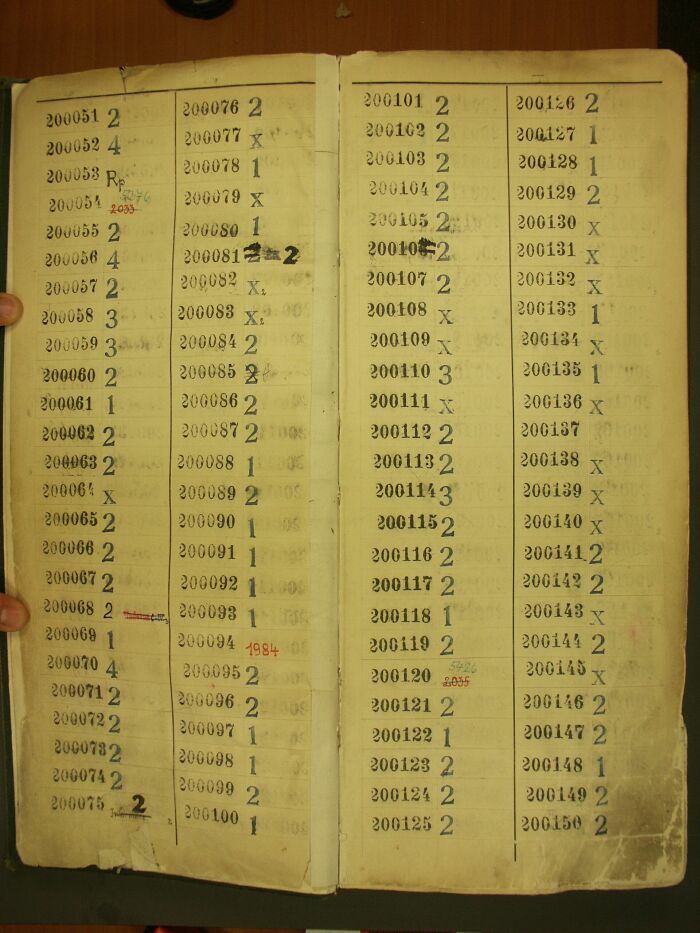 200051 2
200052 4
200053 Rp
200054 5276 2033
200055 2
200056 4
200057 2
200058 3
200059 3
200060 2
200061 1
200062 2
200063 2
200064 x
200065 2
200066 2
200067 2
200068 2
200069 1
200070 4
200071 2
200072 2
200073 2
200074 2
200075 2
200076 2
200077 x
200078 1
200079 x
200080 1
200081 2
200082 x
200083 x
200084 2
200085 2
200086 2
200087 2
200088 1
200089 2
200090 1
200091 1
200092 1
200093 1
200094 1984
200095 2
200096 2
200097 1
200098 1
200099 2
200100 1
200101 2
200102 2
200103 2
200104 2
200105 2
200106 2
200107 2
200108 x
200109 x
200110 3
200111 x
200112 2
200113 2
200114 3
200115 2
200116 2
200117 2
200118 1
200119 2
200120 5426 2035
200121 2
200122 1
200123 2
200124 2
200125 2
200126 2
200127 1
200128 1
200129 2
200130 x
200131 x
200132 x
200133 1
200134 x
200135 1
200136 x
200137
200138 x
200139 x
200140 x
200141 2
200142 2
200143 x
200144 2
200145 x
200146 2
200147 2
200148 1
200149 2
200150 2